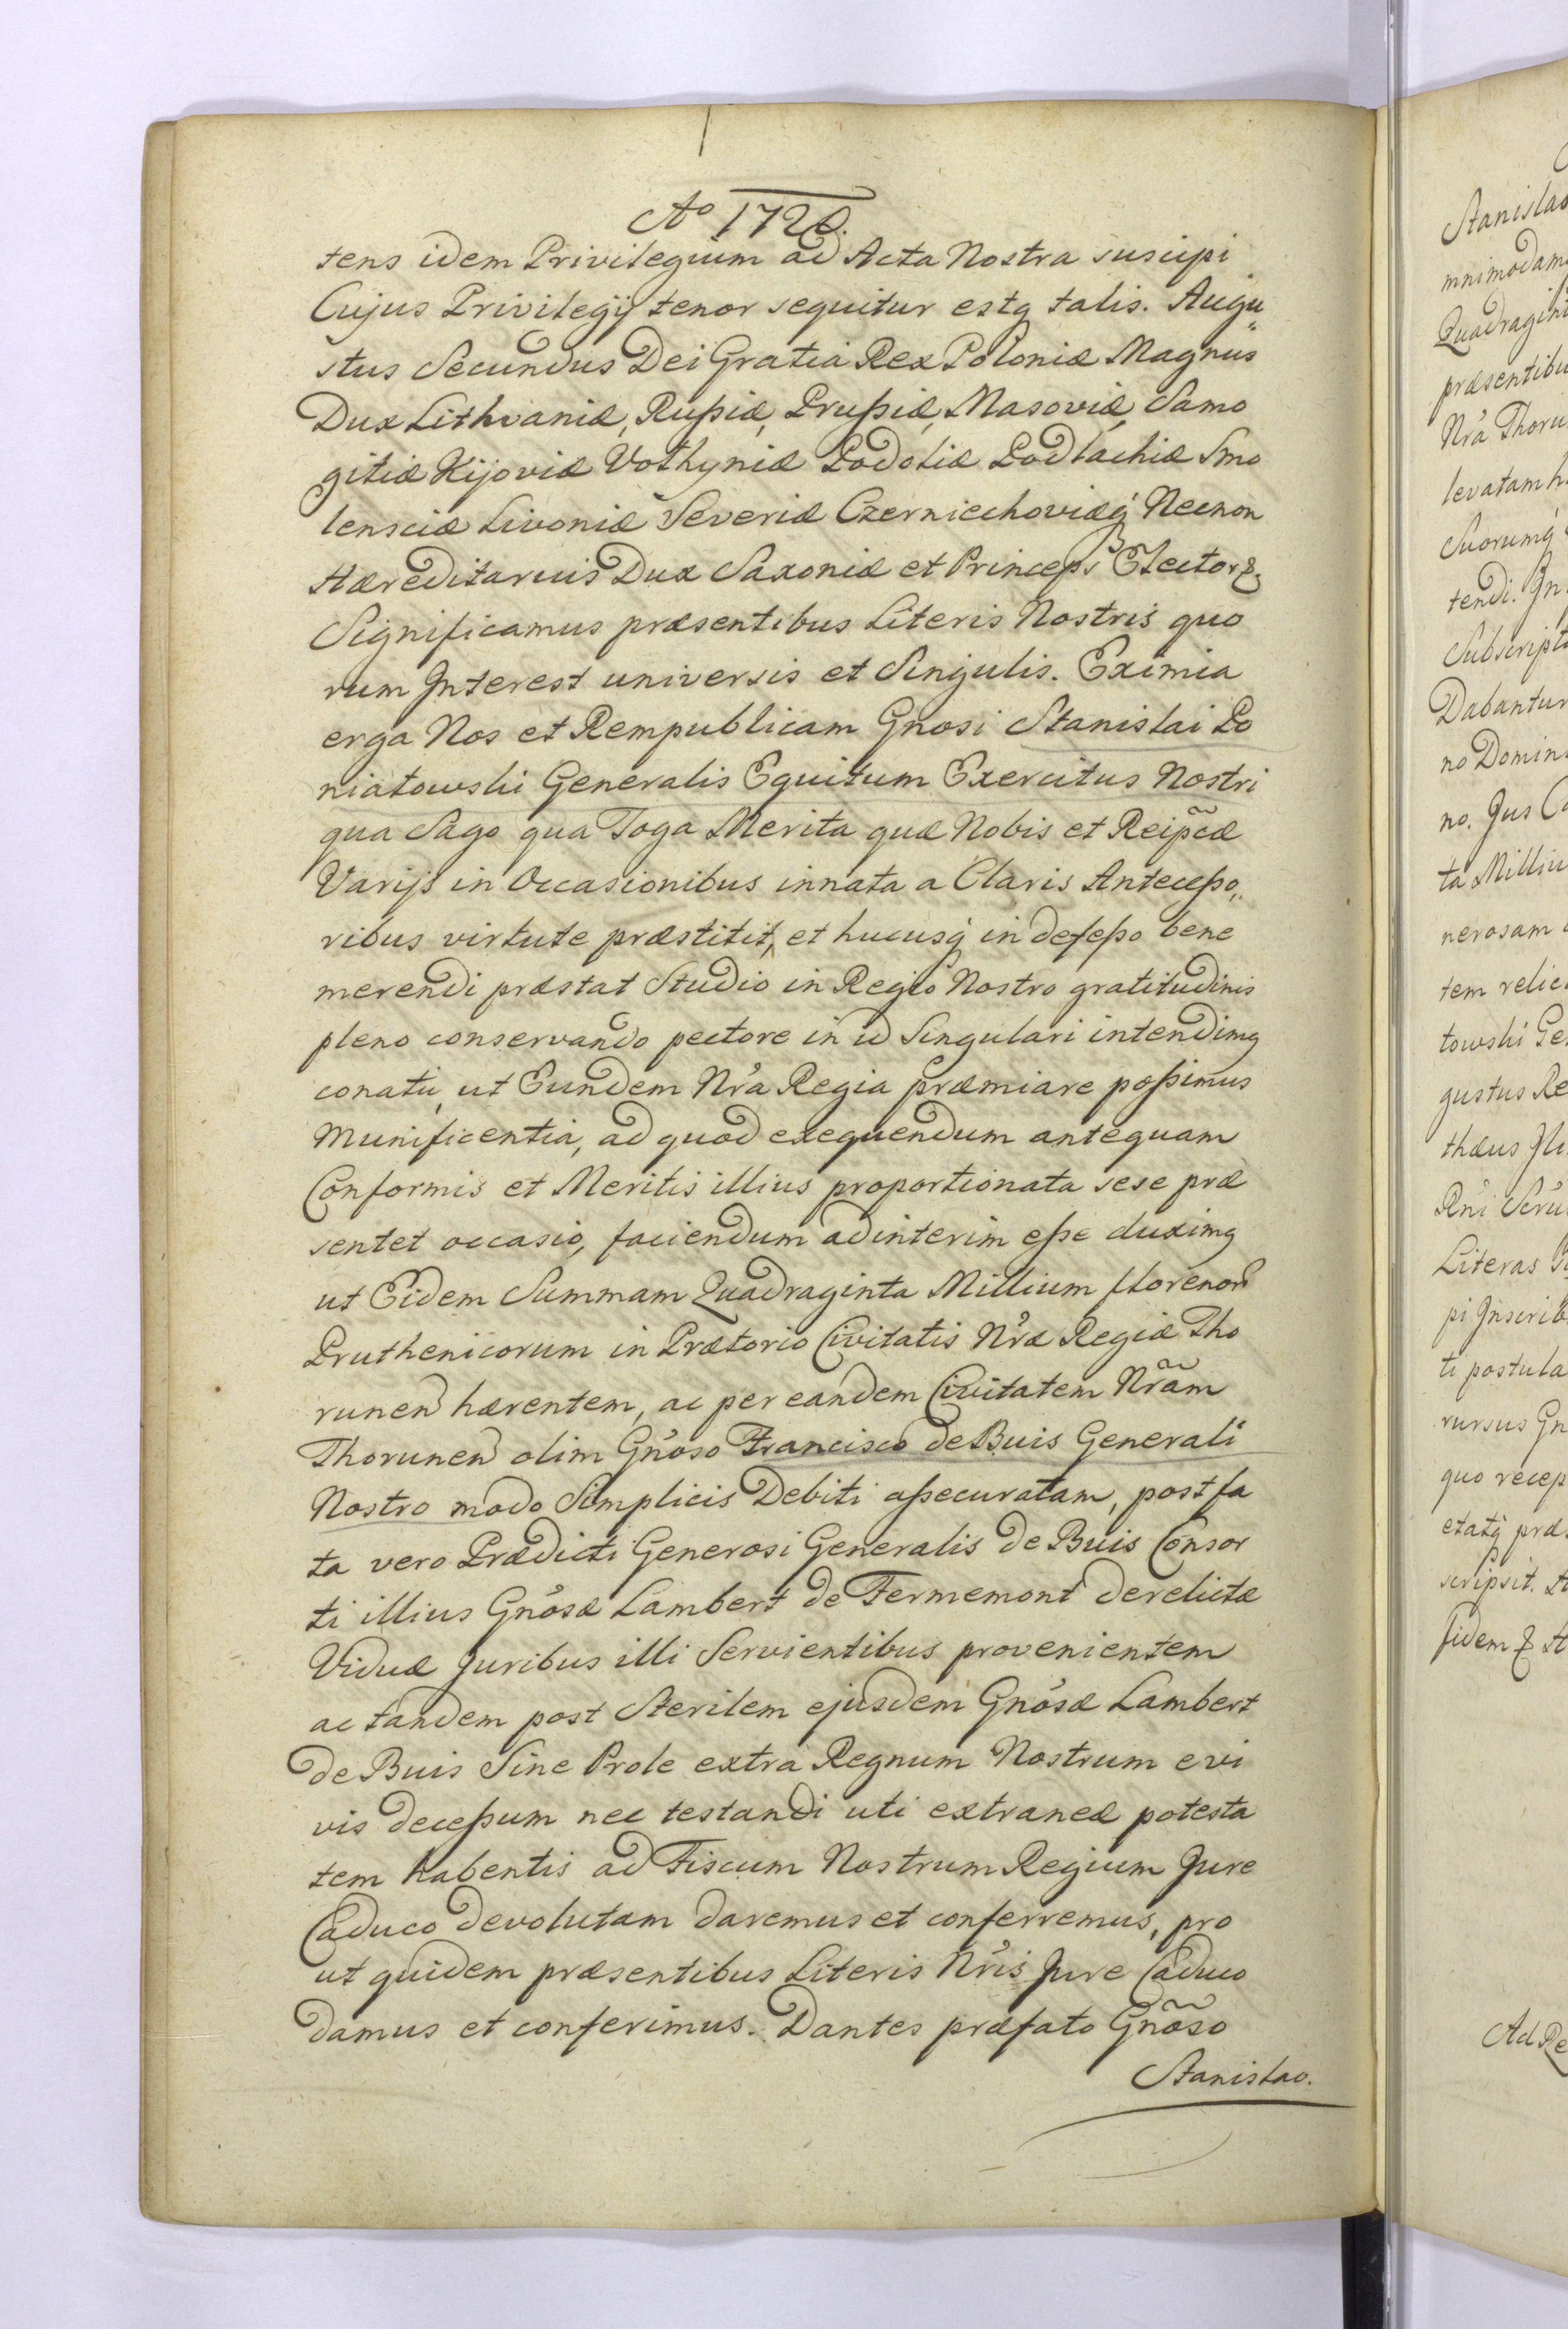 Aº 1720.
tens idem Privilegium ad Acta Nostra suscipi
Cujus Privilegij tenor sequitur estq talis. Augu„
stus Secundus Dei Gratia Rex Poloniæ Magnus
Dux Lithvaniæ, Rußiæ, Prußiæ, Masoviæ, Samo
gitiæ Kijoviæ Volhyniæ Podoliæ Podlachiæ Smo
lensciæ Livoniæ Severiæ Czerniechoviæq́ Necnon
Hæreditarius Dux Saxoniæ et Princeps Elector &
Significamus præsentibus Literis Nostris quo
rum Interest universis et Singulis. Eximia
erga Nos et Rempublicam Gnosi Stanislai Po
niatowski Generalis Equitum Exercitus Nostri
qua Sago qua Toga Merita quæ Nobis et Reip̃cæ
Varijs in Occasionibus innata a Claris Anteceßo„
ribus virtute præstitit, et hucusq́ indefeßo bene
merendi præstat Studio in Regio Nostro gratitudinis
pleno conservando pectore in id Singulari intendimq
conatu, ut Eundem Nr̃a Regia præmiare poßimus
Munificentia, ad quod exequendum antequam
Conformis et Meritis illius proportionata sese præ
sentet occasio, faciendum adinterim eße duximq
ut Eidem Summam Quadraginta Millium florenor̃
Pruthenicorum in Prætorio Civitatis Nr̃æ Regiæ Tho
runen̄ hærentem, ac per eandem Civitatem Nr̃am
Thorunen̄ olim Gnõso Francisco de Buis Generali
Nostro modo Simplicis Debiti aßecuratam, post fa
ta vero Prædicti Generosi Generalis de Buis Consor
ti illius Gnõsæ Lambert de Fermemont derelictæ
Viduæ Juribus illi Servientibus provenientem
ac tandem post Sterilem ejusdem Gnõsæ Lambert
de Buis Sine Prole extra Regnum Nostrum e vi
vis deceßum nec testandi uti extraneæ potesta
tem habentis ad Fiscum Nostrum Regium Jure
Caduco devolutam daremus et conferremus, pro
ut quidem præsentibus Literis Nr̃is Jure Caduco
damus et conferimus. Dantes præfato Gnõso
Stanislao.
Stanislao
mnimodam
Quadragint
præsentibu
Nr̃a Thoru
levatam h
Suorumq́
tendi. In
Subscript
Dabantur
no Domin
no. Jus Ca
ta Milliu
nerosam
tem relic
towski Ge
gustus Re
thæus
Rñi Scr̃u
Literas
pi Inscrib
ti postula
rursus Gn
quo recep
etatq́ præ
scripsit.
fidem
Ad Re